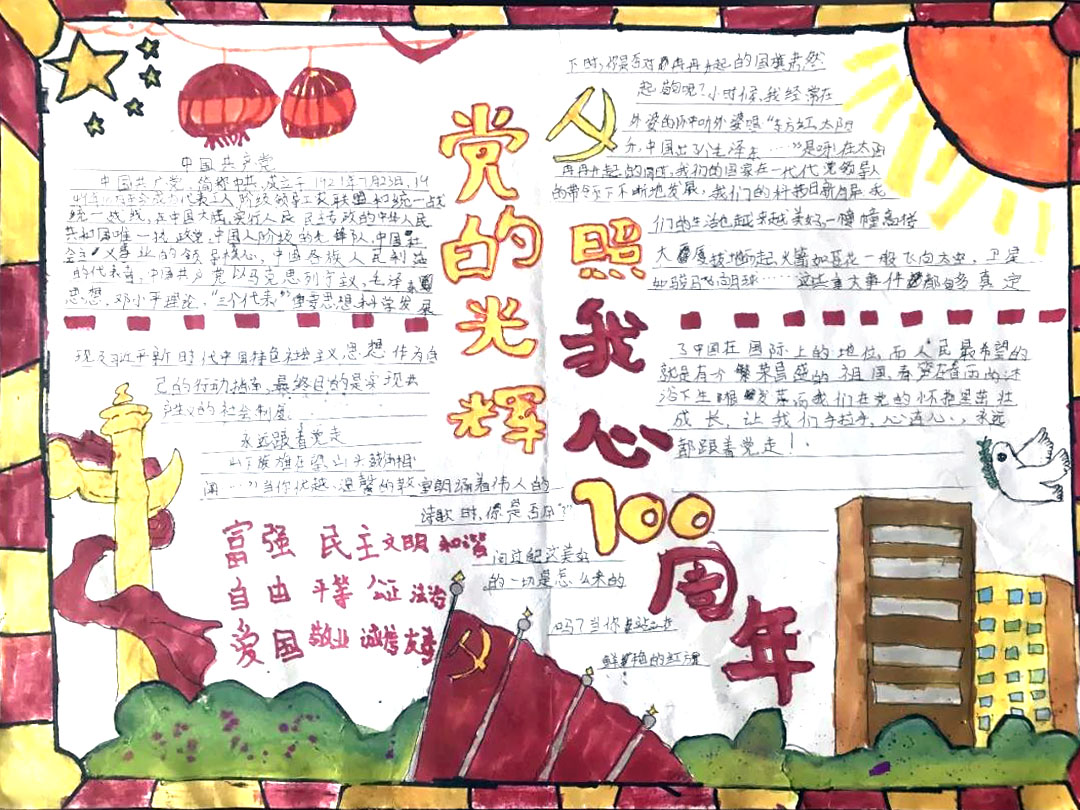 党的光辉
照我心
100
周年
中国共产党
中国共产党，简称中共，成立于1921年7月23日，19
代表工人阶级领导工农联盟和统一战
统一战线，在中国大陆实行人民民主专政的中华人民
共和国唯一执政党，中国工人阶级的先锋队，中国社
会主义事业的领导核心，中国各族人民利益
的代表者，中国共产党以马克思列宁主义，毛泽东
思想，邓小平理论，“三个代表”重要思想科学发展
观及习近平新时代中国特色社会主义思想作为自
己的行动指南，最终目的是实现共
产主义的社会制度
永远跟着党走
山下旌旗在望，山头鼓角相
闻……”当你优越、温馨的教室朗诵着伟人的
诗歌时，你是否在“
问过把这美好
的一切是怎么来的
吗？当你站在
鲜艳的红旗
下时，你是否对冉冉升起的国旗肃然
起敬呢？小时候，我经常在
外婆的怀中听外婆唱“东方红，太阳
升，中国出了个毛泽东……”是啊！在太阳
冉冉升起的同时，我们的国家在一代代党领导人
的带领下不断地发展，我们的科技日新月异，我
们的生活也越来越美好，一幢幢高楼
大厦拔地而起，火箭如莲花一般飞向太空，卫星
如骏马飞向月球……这些重大事件都够奠定
了中国在国际上的地位，而人民最希望的
就是有今繁荣昌盛的祖国，春芽在春雨的沐
浴下生根发芽，而我们在党的怀抱里茁壮
成长，让我们手拉手，心连心，永远
都跟着党走！
富强 民主 文明 和谐
自由 平等 公正 法治
爱国 敬业 诚信 友善